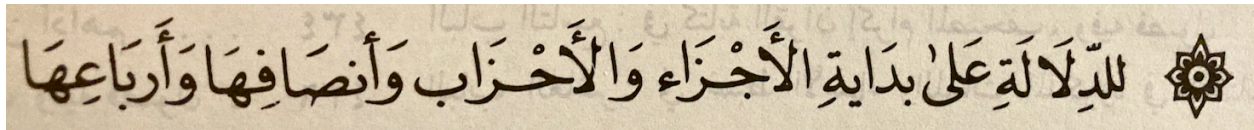 للدِّلَالَةِ عَلىٰ بدَايةِ الأَجْزَاء وَالأَحْزَاب وَأنصَافِهَا وَأَربَاعِهَا